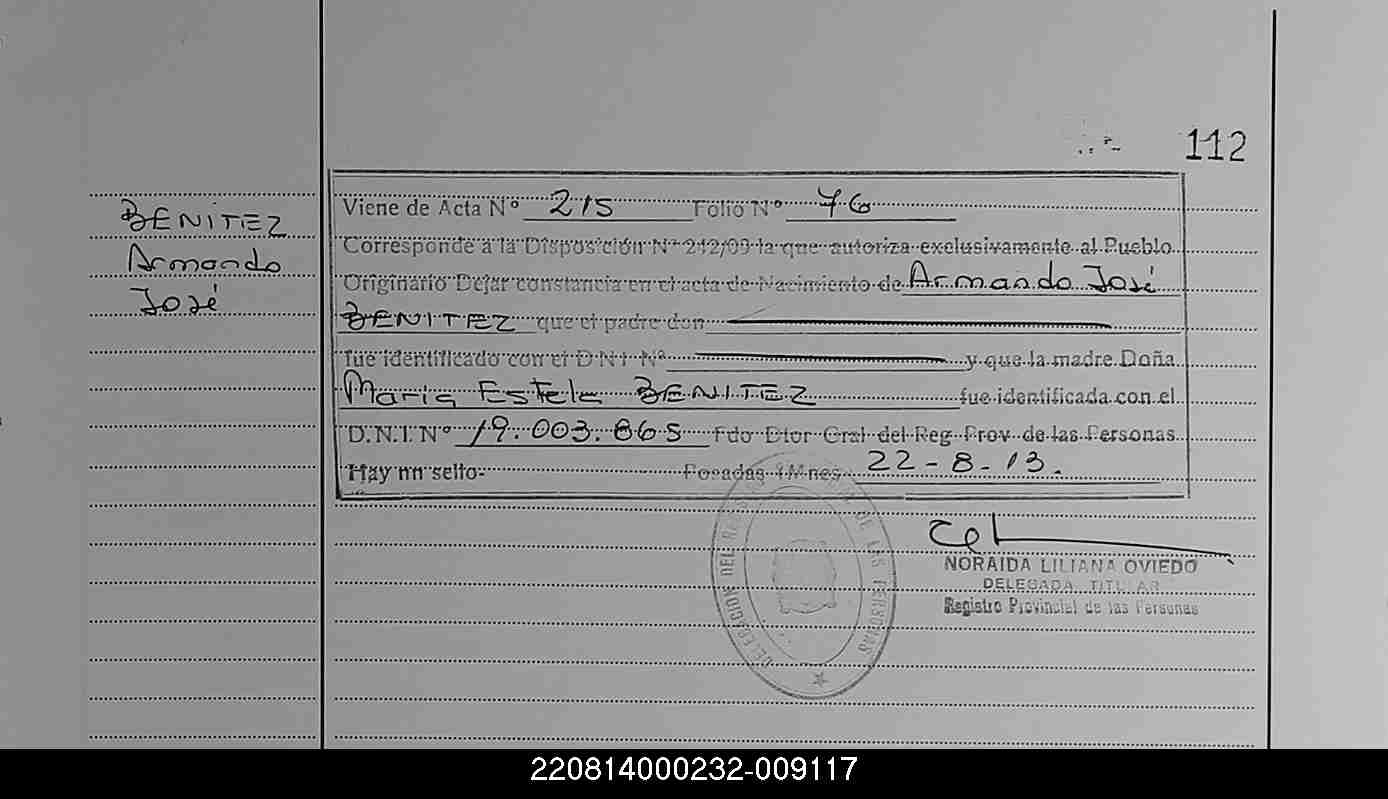 112
BENITEZ
Armando
José
Viene de Acta Nº 215 Folio Nº 76
Corresponde a la Disposición Nº 242/09 la que autoriza exclusivamente al Pueblo
Originario Dejar constancia en el acta de Nacimiento de Armando José
BENITEZ que el padre don
fue identificado con el D N I Nº y que la madre Doña
Maria Estela BENITEZ fue identificada con el
D.N.I. Nº 19.003.865 Fdo Dtor Gral del Reg Prov de las Personas
Hay un sello- Posadas (Mnes) 22-8-13.
NORAIDA LILIANA OVIEDO
DELEGADA TITULAR
Registro Provincial de las Personas
DELEGACION DEL DE LAS PERSONAS
220814000232-009117